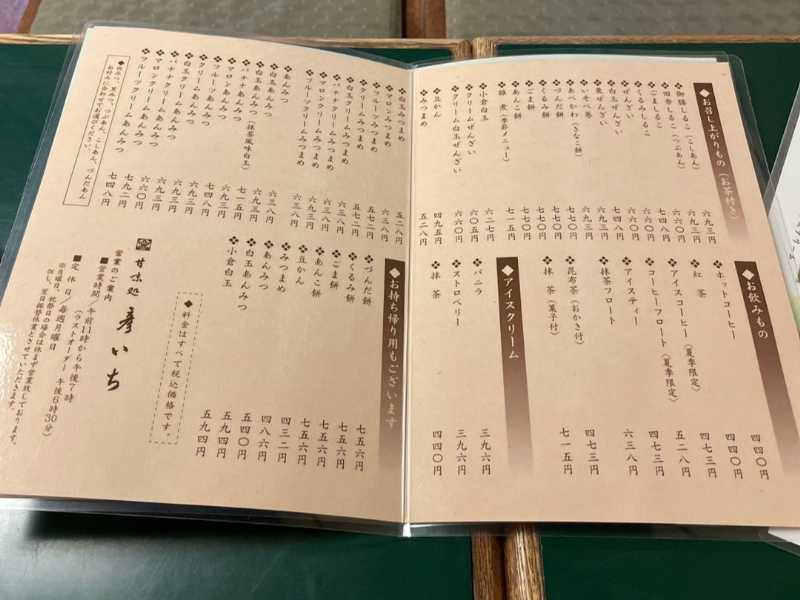 ◆お召し上がりもの（お茶付き）
❖御膳しるこ（こしあん） 六九三円
❖田舎しるこ（つぶあん）
❖ごましるこ
❖くるみしるこ
❖ぜんざい
❖白玉ぜんざい
❖栗ぜんざい
❖いそべ巻
❖あべかわ（きなこ餅） 七七〇円
❖づんだ餅 七七〇円
❖くるみ餅 七七〇円
❖ごま餅 七七〇円
❖あんこ餅
❖雑煮（季節メニュー） 七一五円
❖小倉白玉 六二七円
❖クリームぜんざい 六〇五円
❖クリーム白玉ぜんざい 六六〇円
❖豆かん 四九五円
❖みつまめ 五二八円
◆お飲みもの
❖ホットコーヒー 四四〇円
❖紅茶 四四〇円
❖アイスコーヒー（夏季限定） 四七三円
❖コーヒーフロート（夏季限定） 五二八円
❖アイスティー 四七三円
❖抹茶フロート 六三八円
❖昆布茶（おかき付） 四七三円
❖抹茶（菓子付） 七一五円
◆アイスクリーム
❖バニラ 三九六円
❖ストロベリー 三九六円
❖抹茶 四四〇円
❖白玉みつまめ
❖マロンみつまめ
❖フルーツみつまめ
❖クリームみつまめ
❖白玉クリームみつまめ
❖バナナクリームみつまめ
❖マロンクリームみつまめ
❖フルーツクリームみつまめ
❖あんみつ
❖白玉あんみつ
❖白玉あんみつ（抹茶風味白玉）
❖バナナあんみつ
❖マロンあんみつ
❖フルーツあんみつ
❖クリームあんみつ
❖白玉クリームあんみつ
❖バナナクリームあんみつ
❖マロンクリームあんみつ
❖フルーツクリームあんみつ
◆白みつ、黒みつ、つぶあん、こしあん、づんだあん
お好みに合わせてお選びください。
◆お持ち帰り用もございます
❖づんだ餅 七五六円
❖くるみ餅 七五六円
❖ごま餅 七五六円
❖あんこ餅 七五六円
❖豆かん 四三二円
❖みつまめ 四八六円
❖あんみつ 五四〇円
❖白玉あんみつ 五九四円
❖小倉白玉 五九四円
◆料金はすべて税込価格です。
甘味処 彦いち
営業のご案内
■営業時間／午前11時から午後7時
（ラストオーダー 午後6時30分）
■定休日／毎週月曜日
※月曜日、祝祭日の場合は休まず営業致しております。
但し、翌日振替休業とさせていただきます。